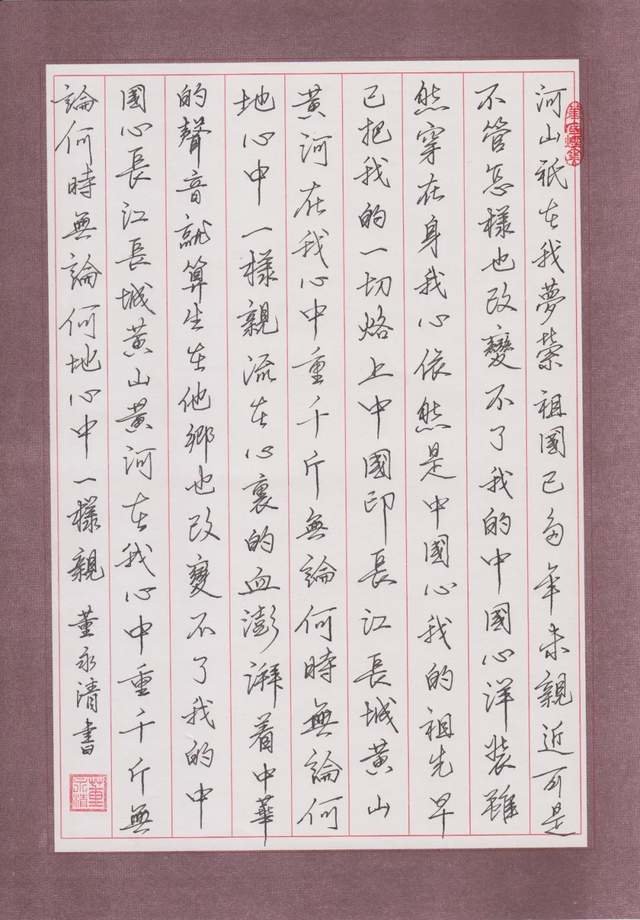 河山祇在我夢縈祖國已多年未親近可是
不管怎樣也改變不了我的中國心洋裝雖
然穿在身我心依然是中國心我的祖先早
已把我的一切烙上中國印長江長城黃山
黃河在我心中重千斤無論何時無論何
地心中一樣親流在心裏的血澎湃着中華
的聲音就算生在他鄉也改變不了我的中
國心長江長城黃山黃河在我心中重千斤無
論何時無論何地心中一樣親 董永清書